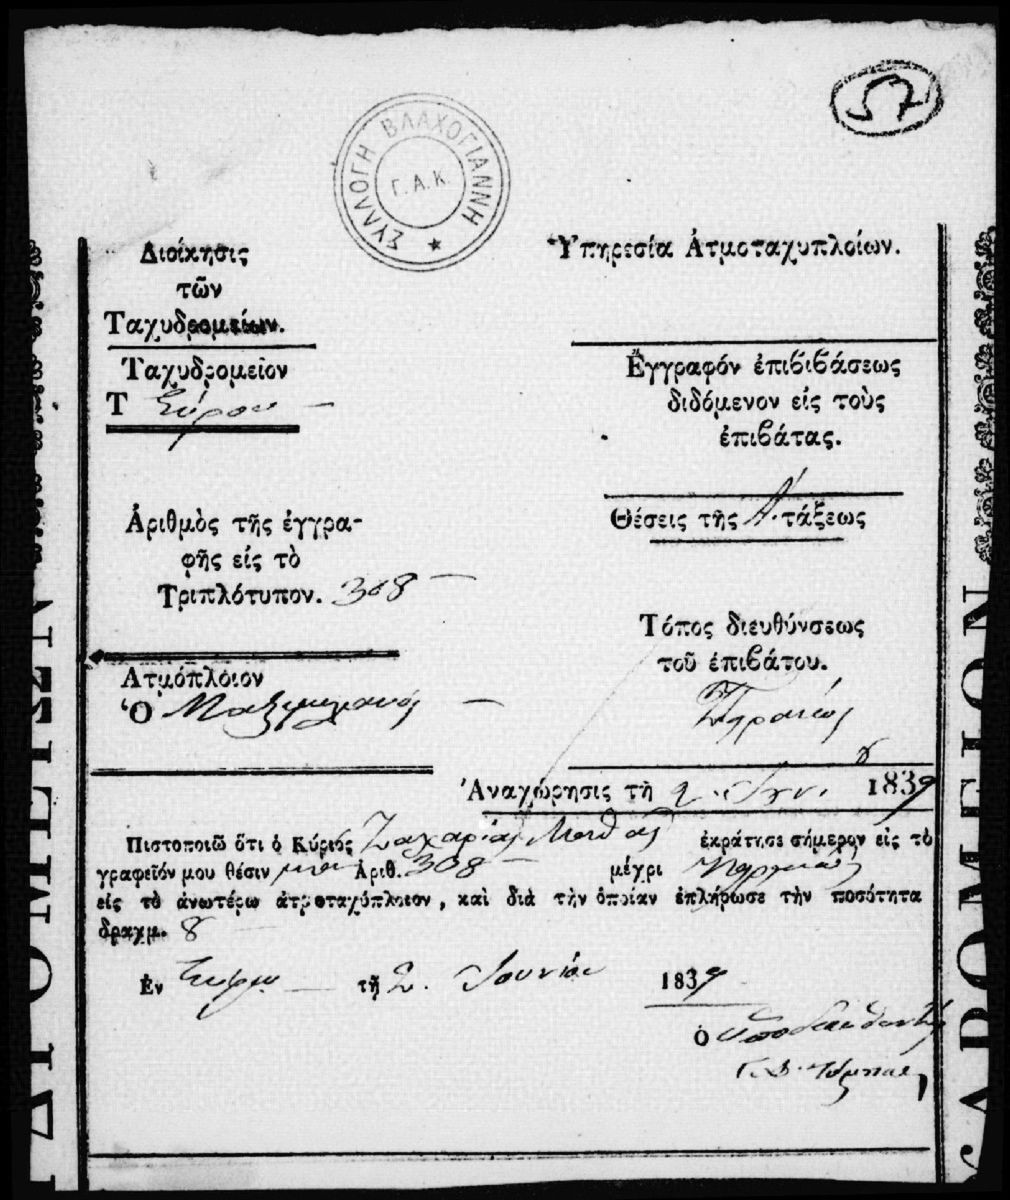 57
ΣΥΛΛΟΓΗ ΒΛΑΧΟΓΙΑΝΝΗ
Γ.Α.Κ.
Διοίκησις
τῶν
Ταχυδρομείων.
Ταχυδρομεῖον
Τ Σύρου
Ἀριθμὸς τῆς ἐγγρα-
φῆς εἰς τὸ
Τριπλότυπον. 308
Ἀτμόπλοιον
Ὁ Μαξιμιλιανός
Ὑπηρεσία Ἀτμοταχυπλοίων.
Ἔγγραφόν ἐπιβιβάσεως
διδόμενον εἰς τοὺς
ἐπιβάτας.
Θέσεις τῆς Α΄. τάξεως
Τόπος διευθύνσεως
τοῦ ἐπιβάτου.
Πειραιεύς
Ἀναχώρησις τῇ 2. Ἰουν. 1839
Πιστοποιῶ ὅτι ὁ Κύριός Ζαχαρίας ἐκράτησε σήμερον εἰς τὸ
γραφεῖόν μου θέσιν μίαν Ἀριθ. 308 μέχρι
εἰς τὸ ἀνωτέρω ἀτμοταχύπλοιον, καὶ διὰ τὴν ὁποίαν ἐπλήρωσε τὴν ποσότητα
δραχμ. 8
Ἐν Σύρῳ τῇ 2. Ἰουνίου 1839
ὁ